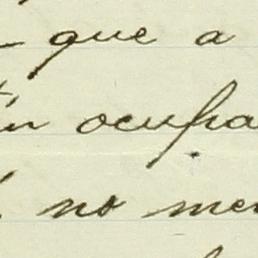 que a
ocupa
no me